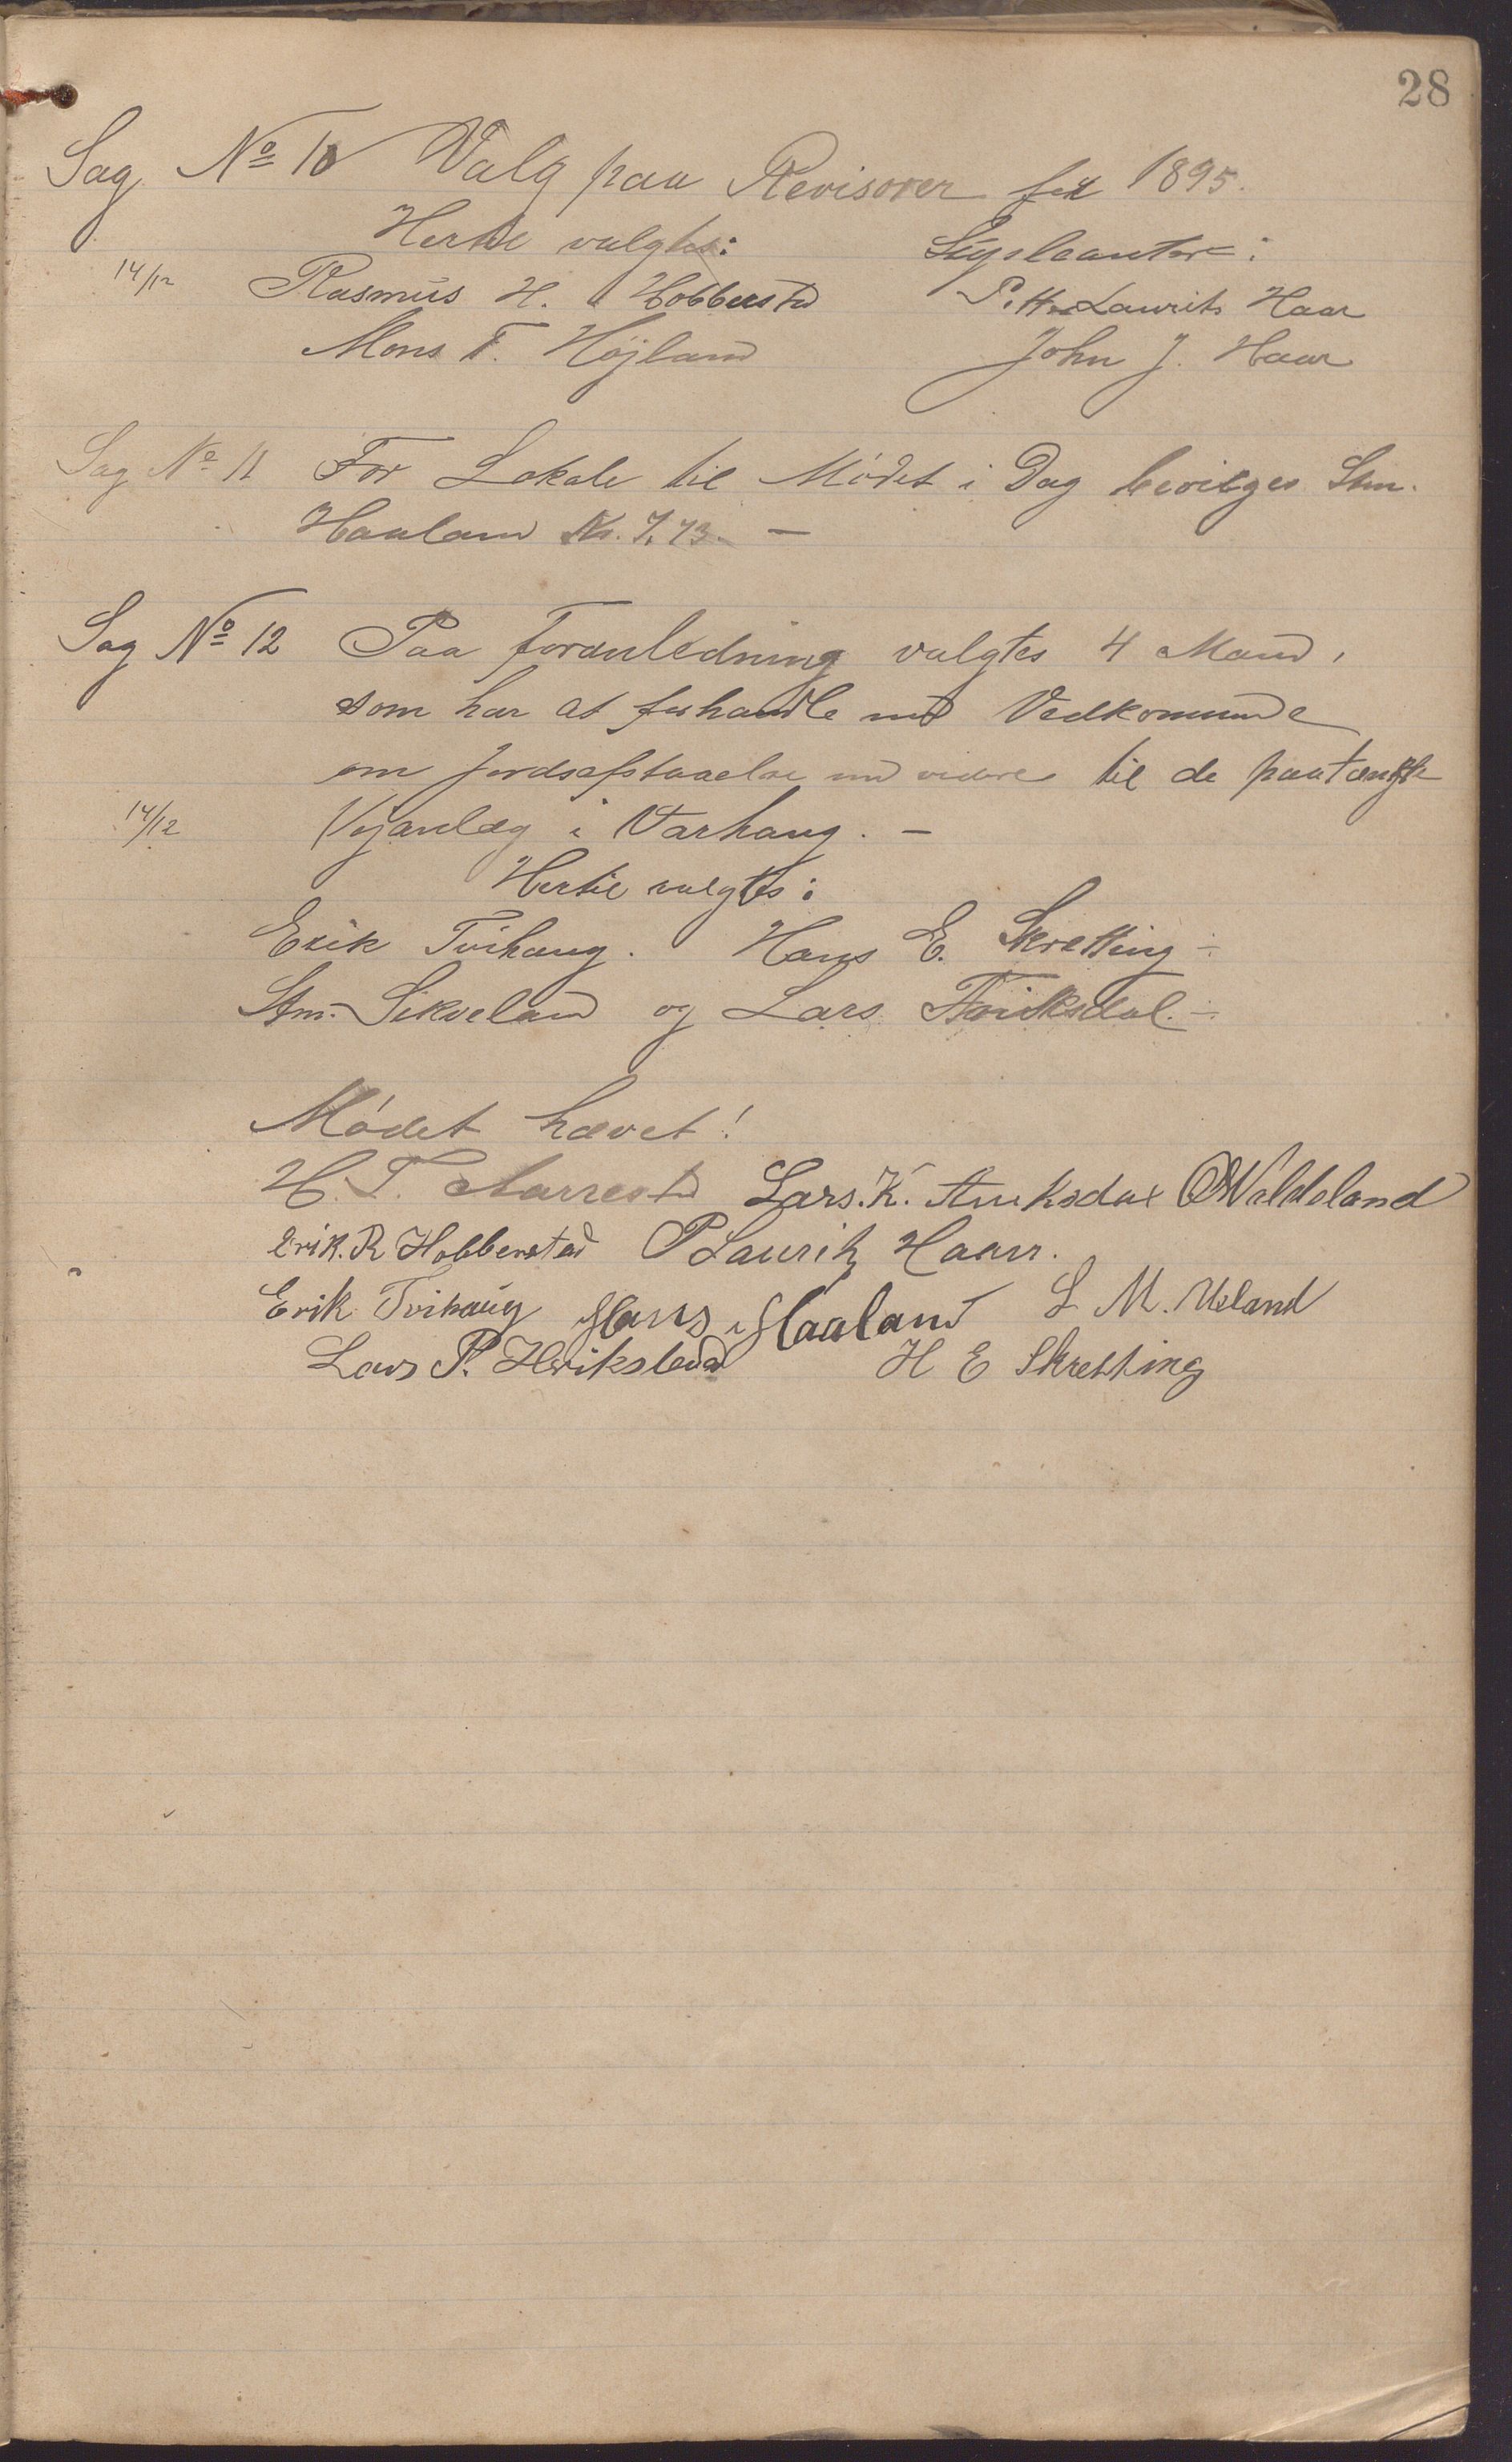 28
Sag No 10 Valg paa Revisorer for 1895.
Hertil valgtes: Suppleanter:
14/12 Rasmus H. Hobberstad P. Laurits Haar
Mons T. Højland John J. Haar
Sag No 11 For Lokale til Mødet i Dag bevilges Stm.
Haaland Kr.
Sag No 12 Paa Foranledning valgtes 4 Mand,
som har at forhandle med Vedkommende
om Jordsafstaaelse med videre til de paatænkte
14/12 Vejanlæg i Varhaug. —
Hertil valgtes:
Erik Tvihaug. Hans E. Skretting
Stm. Sikveland og Lars
Mødet hævet!
H. T. Aarrestad Lars. K. Auksdal
Erik. R Hobberstad P Laurits Haarr.
Erik Tvihaug Hans Haaland L M. Ueland
Lars P. H E Skretting